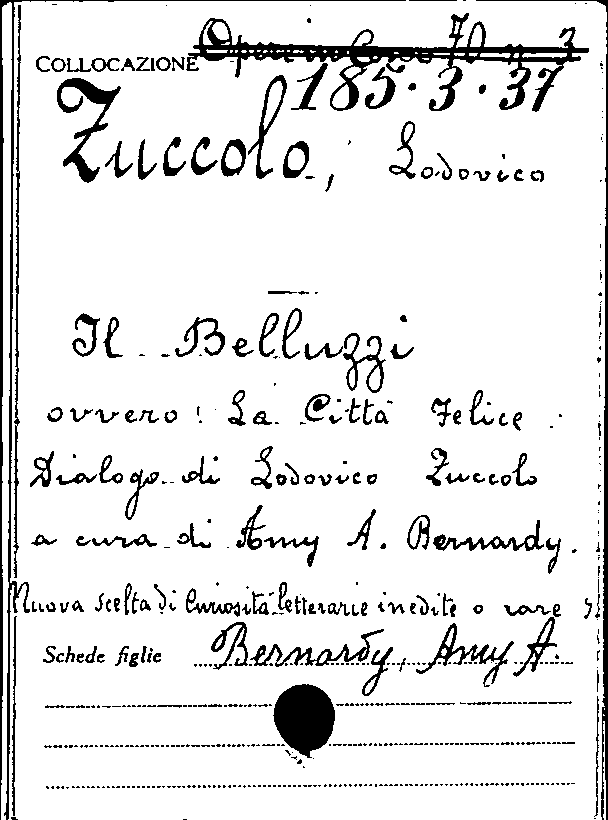 Opere in Corso 70 n. 3
COLLOCAZIONE 185.3.37
Zuccolo, Lodovico
Il Belluzzi
ovvero: La Città Felice.
Dialogo di Lodovico Zuccolo
a cura di Amy A. Bernardy.
Nuova scelta di Curiosità letterarie inedite o rare
Schede figlie Bernardy, Amy A.